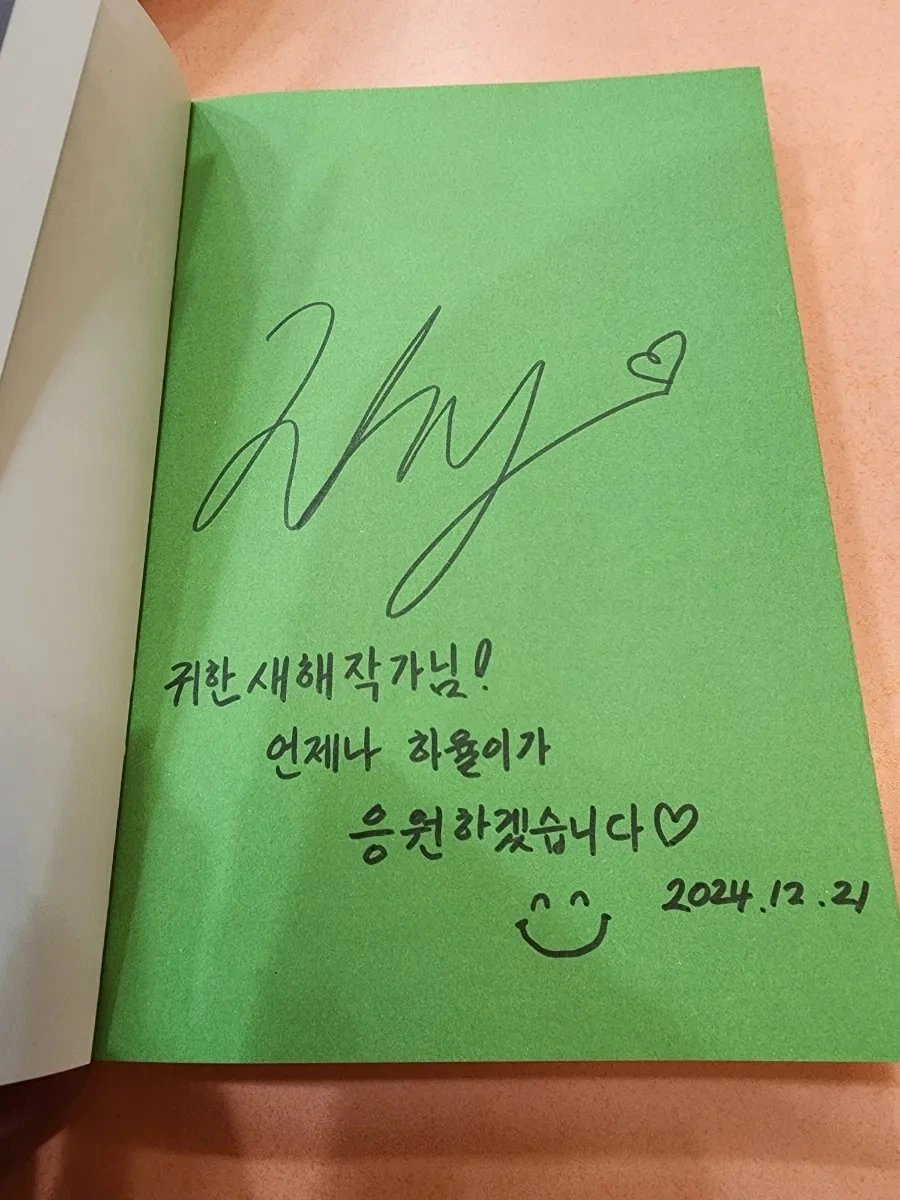 귀한 새해 작가님!
언제나 하율이가
응원하겠습니다♡
2024.12.21